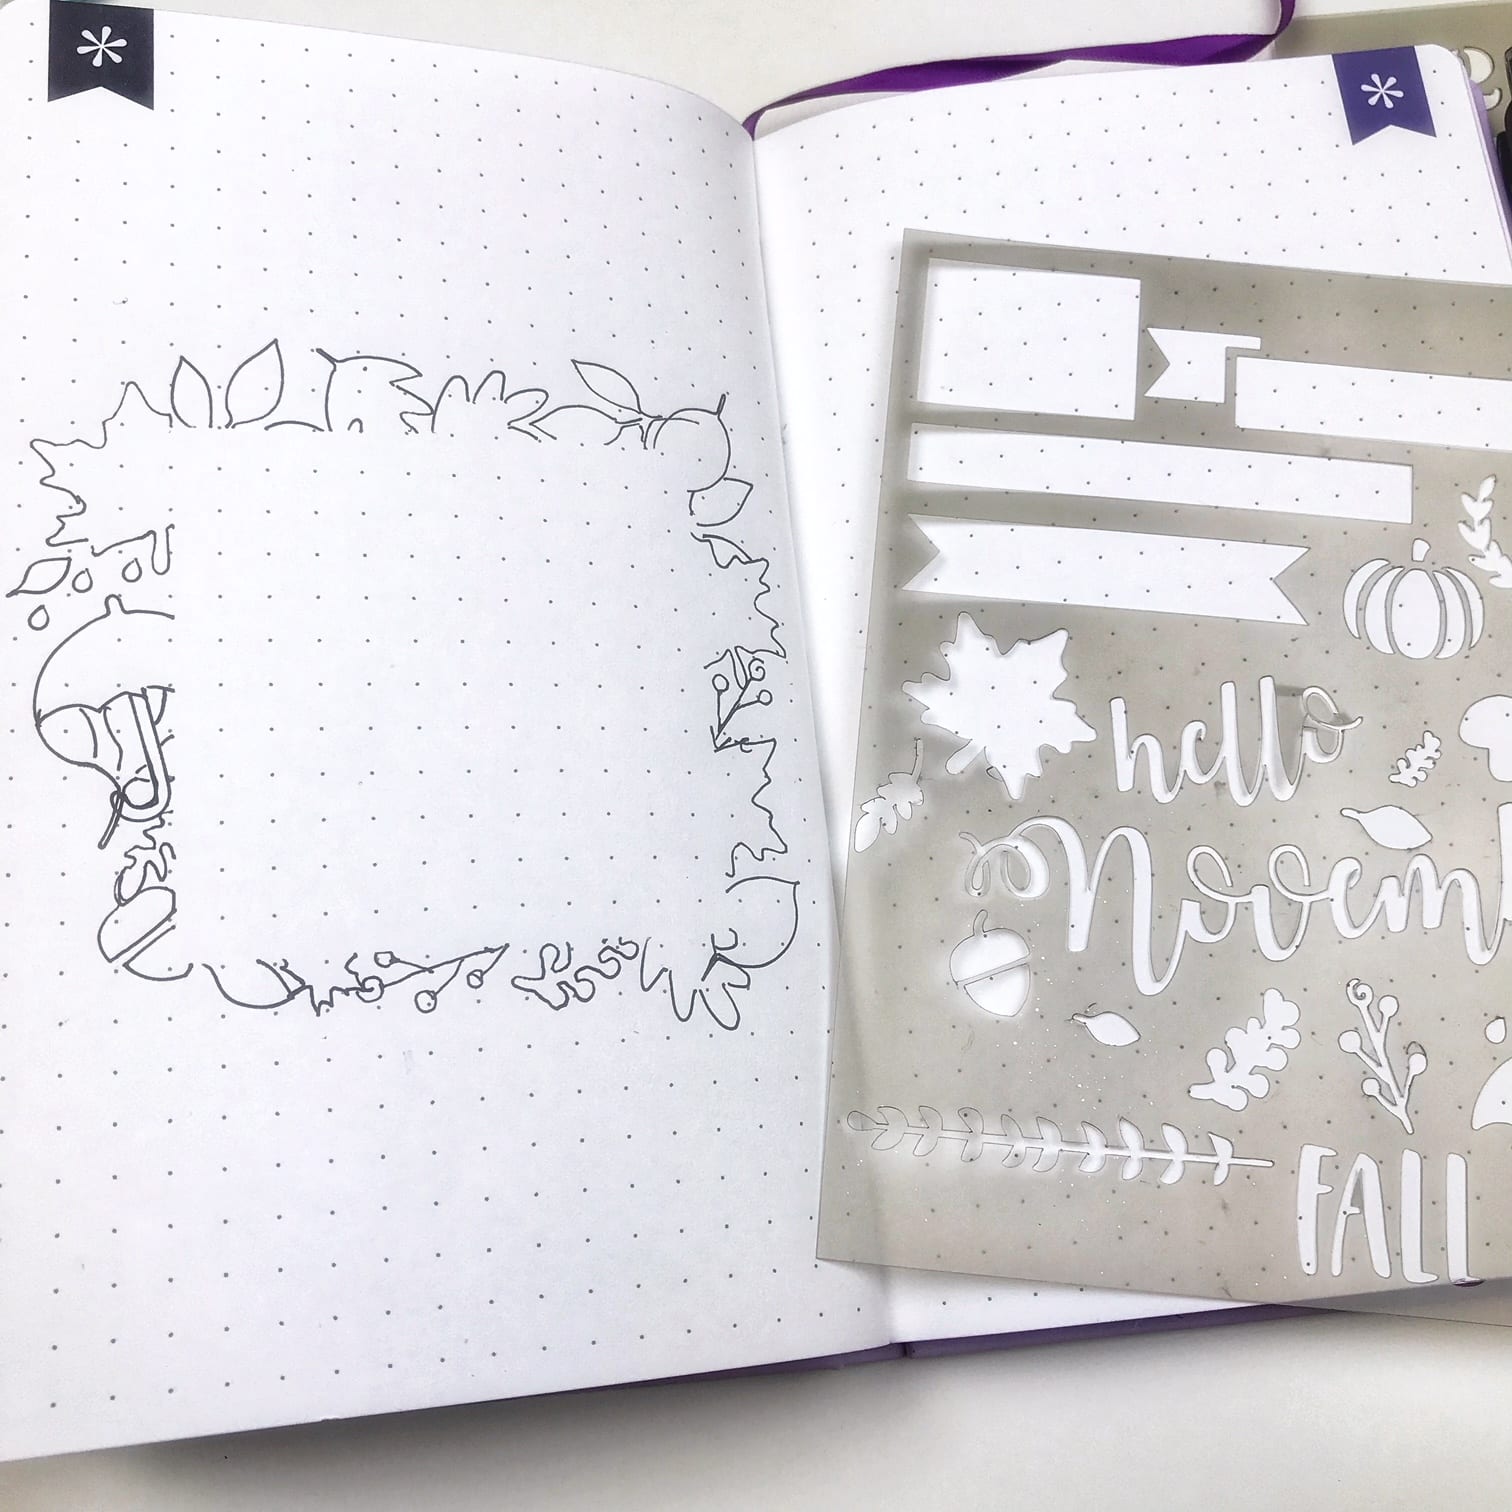 hello
Novem
FALL